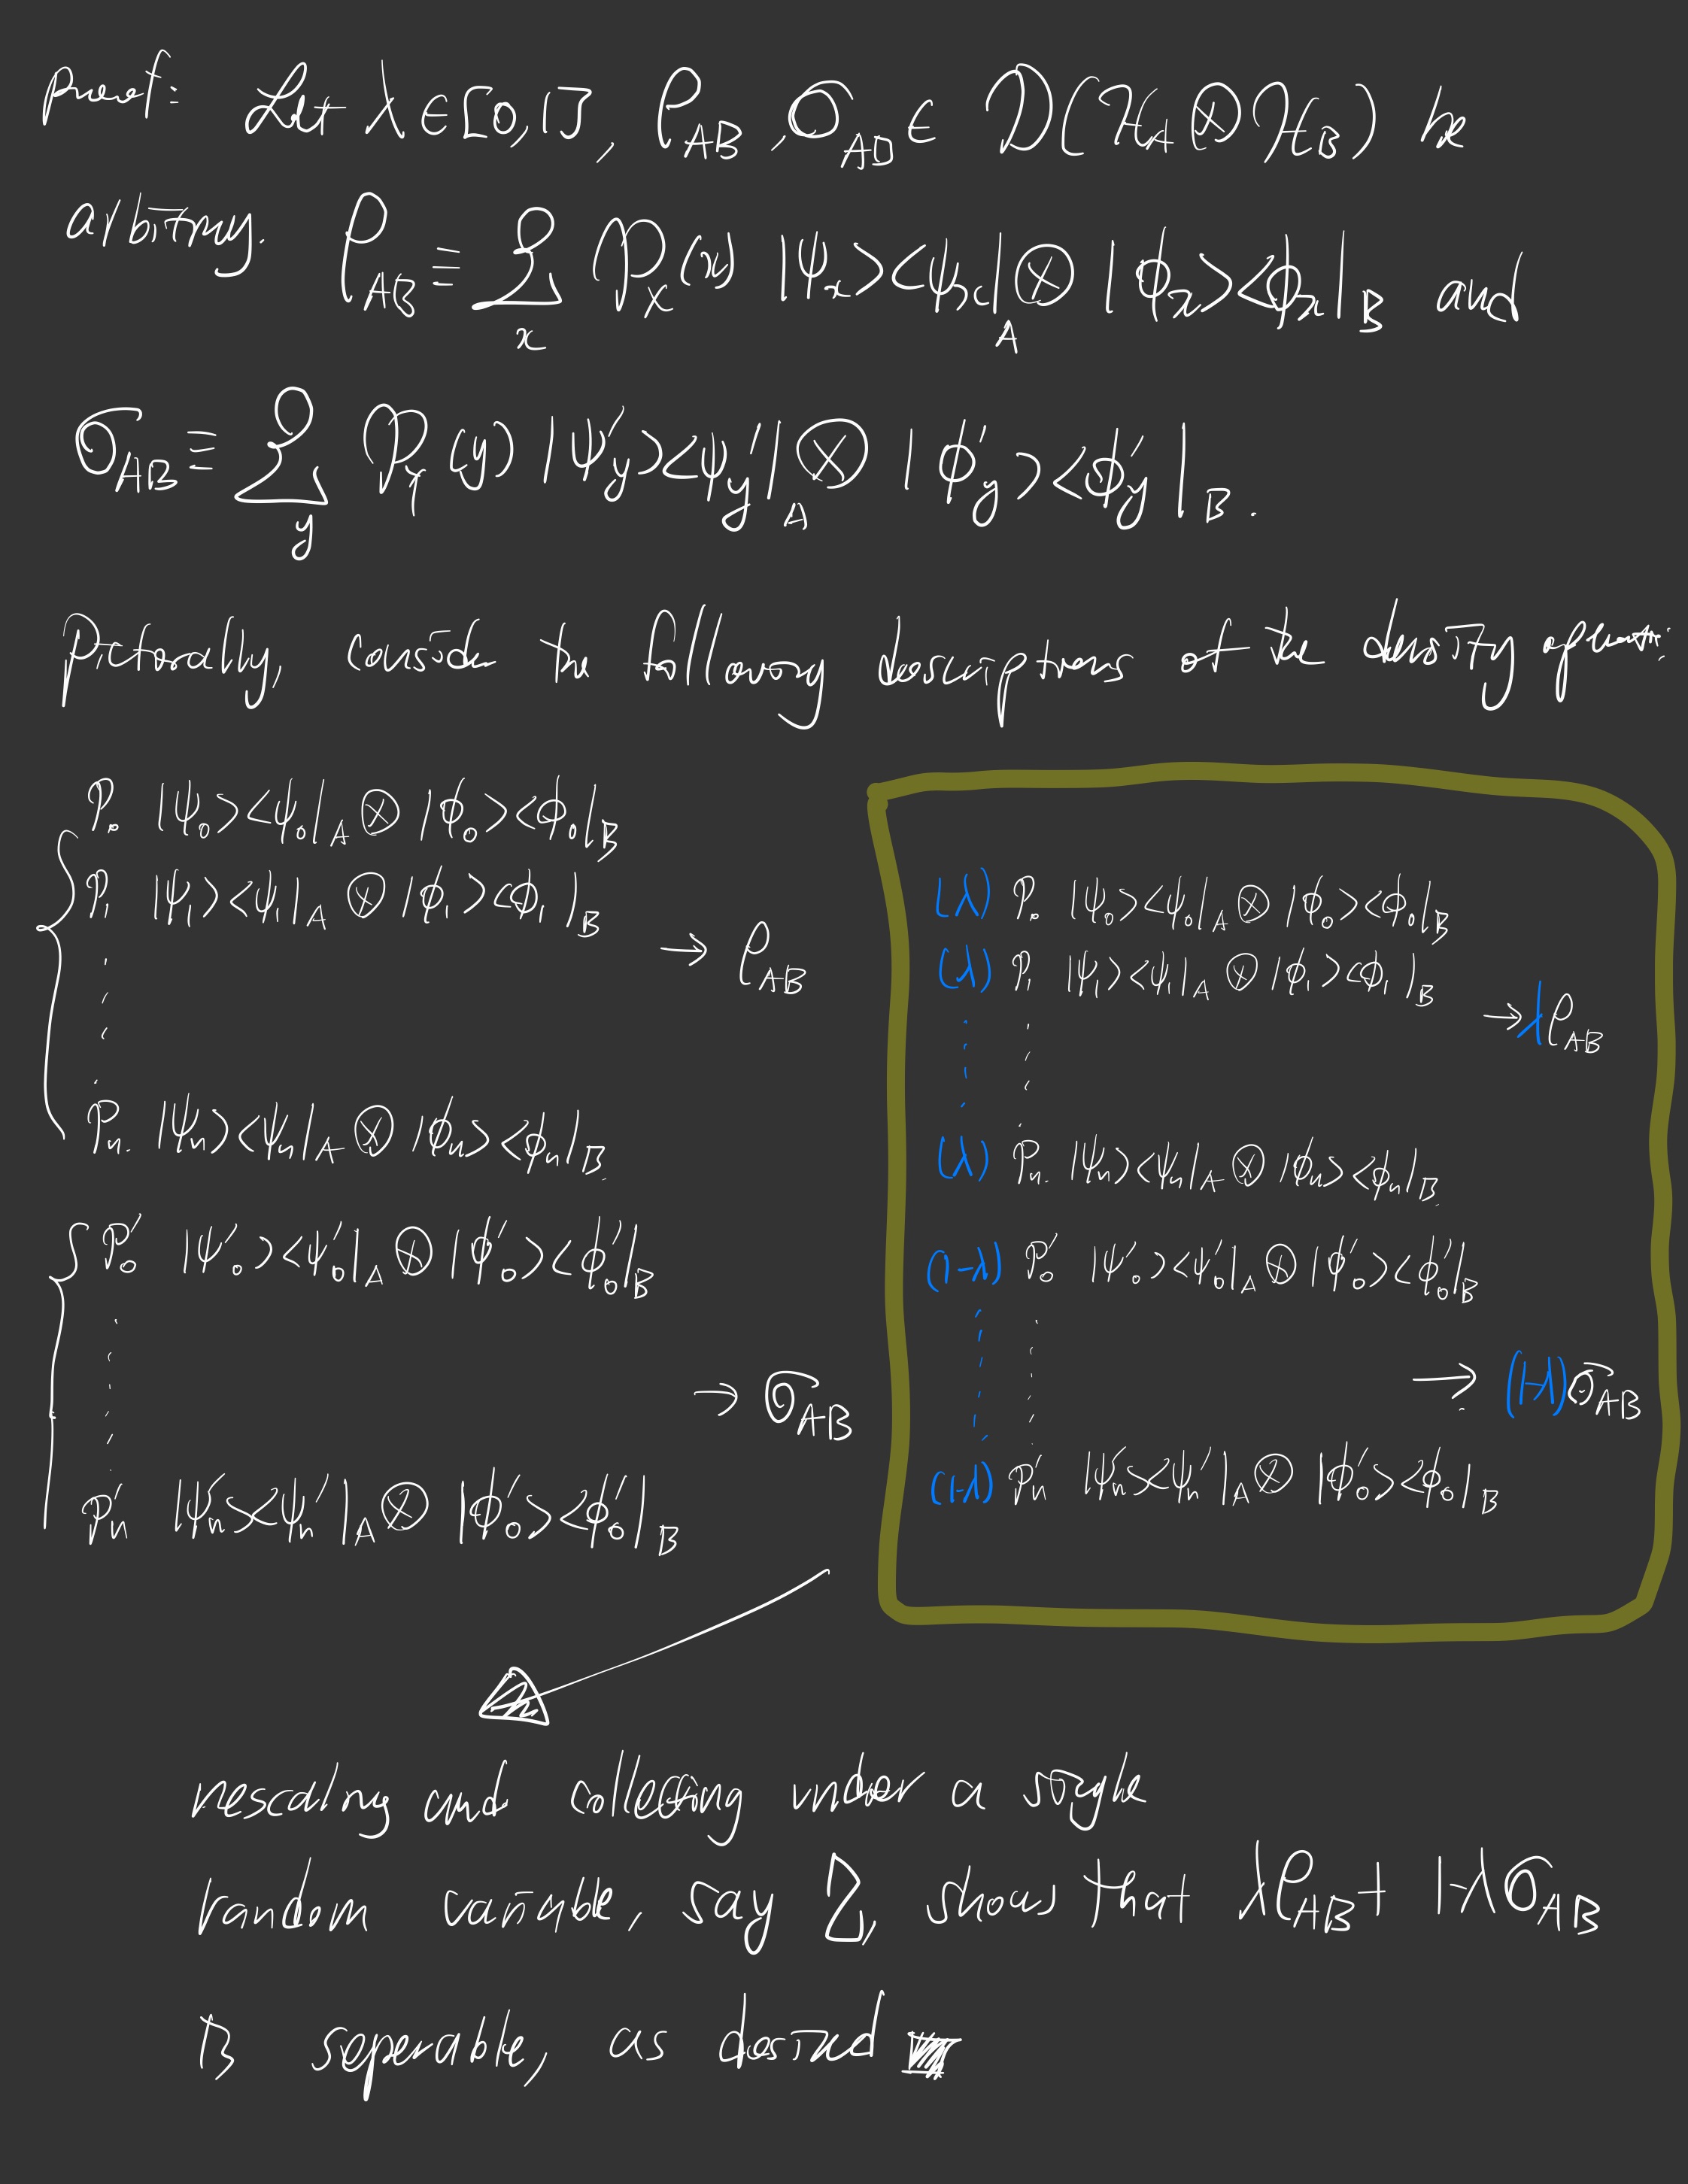 proof: Let λ ∈ [0,1], ρ_AB, σ_AB ∈ D(H_A ⊗ H_B) be
arbitrary. ρ_AB ≡ Σ_x P_X(x) |ψ_x><ψ_x|_A ⊗ |φ_x><φ_x|_B and
σ_AB ≡ Σ_y P_Y(y) |ψ'_y><ψ'_y|_A ⊗ |φ'_y><φ'_y|_B.
Pictorally, consider the following descriptions of the density operators:
P_0 |ψ_0><ψ_0|_A ⊗ |φ_0><φ_0|_B
P_1 |ψ_1><ψ_1|_A ⊗ |φ_1><φ_1|_B
→ ρ_AB
P_n |ψ_n><ψ_n|_A ⊗ |φ_n><φ_n|_B
P'_0 |ψ'_0><ψ'_0|_A ⊗ |φ'_0><φ'_0|_B
→ σ_AB
P'_n |ψ'_n><ψ'_n|_A ⊗ |φ'_0><φ'_0|_B
(λ) P_0 |ψ_0><ψ_0|_A ⊗ |φ_0><φ_0|_B
(λ) P_1 |ψ_1><ψ_1|_A ⊗ |φ_1><φ_1|_B
→ λρ_AB
(λ) P_n |ψ_n><ψ_n|_A ⊗ |φ_n><φ_n|_B
(1-λ) P'_0 |ψ'_0><ψ'_0|_A ⊗ |φ'_0><φ'_0|_B
→ (1-λ)σ_AB
(1-λ) P'_n |ψ'_n><ψ'_n|_A ⊗ |φ'_0><φ'_0|_B
rescaling and collecting under a single
random variable, say Z, shows that λρ_AB + 1-λσ_AB
is seperable, as desired